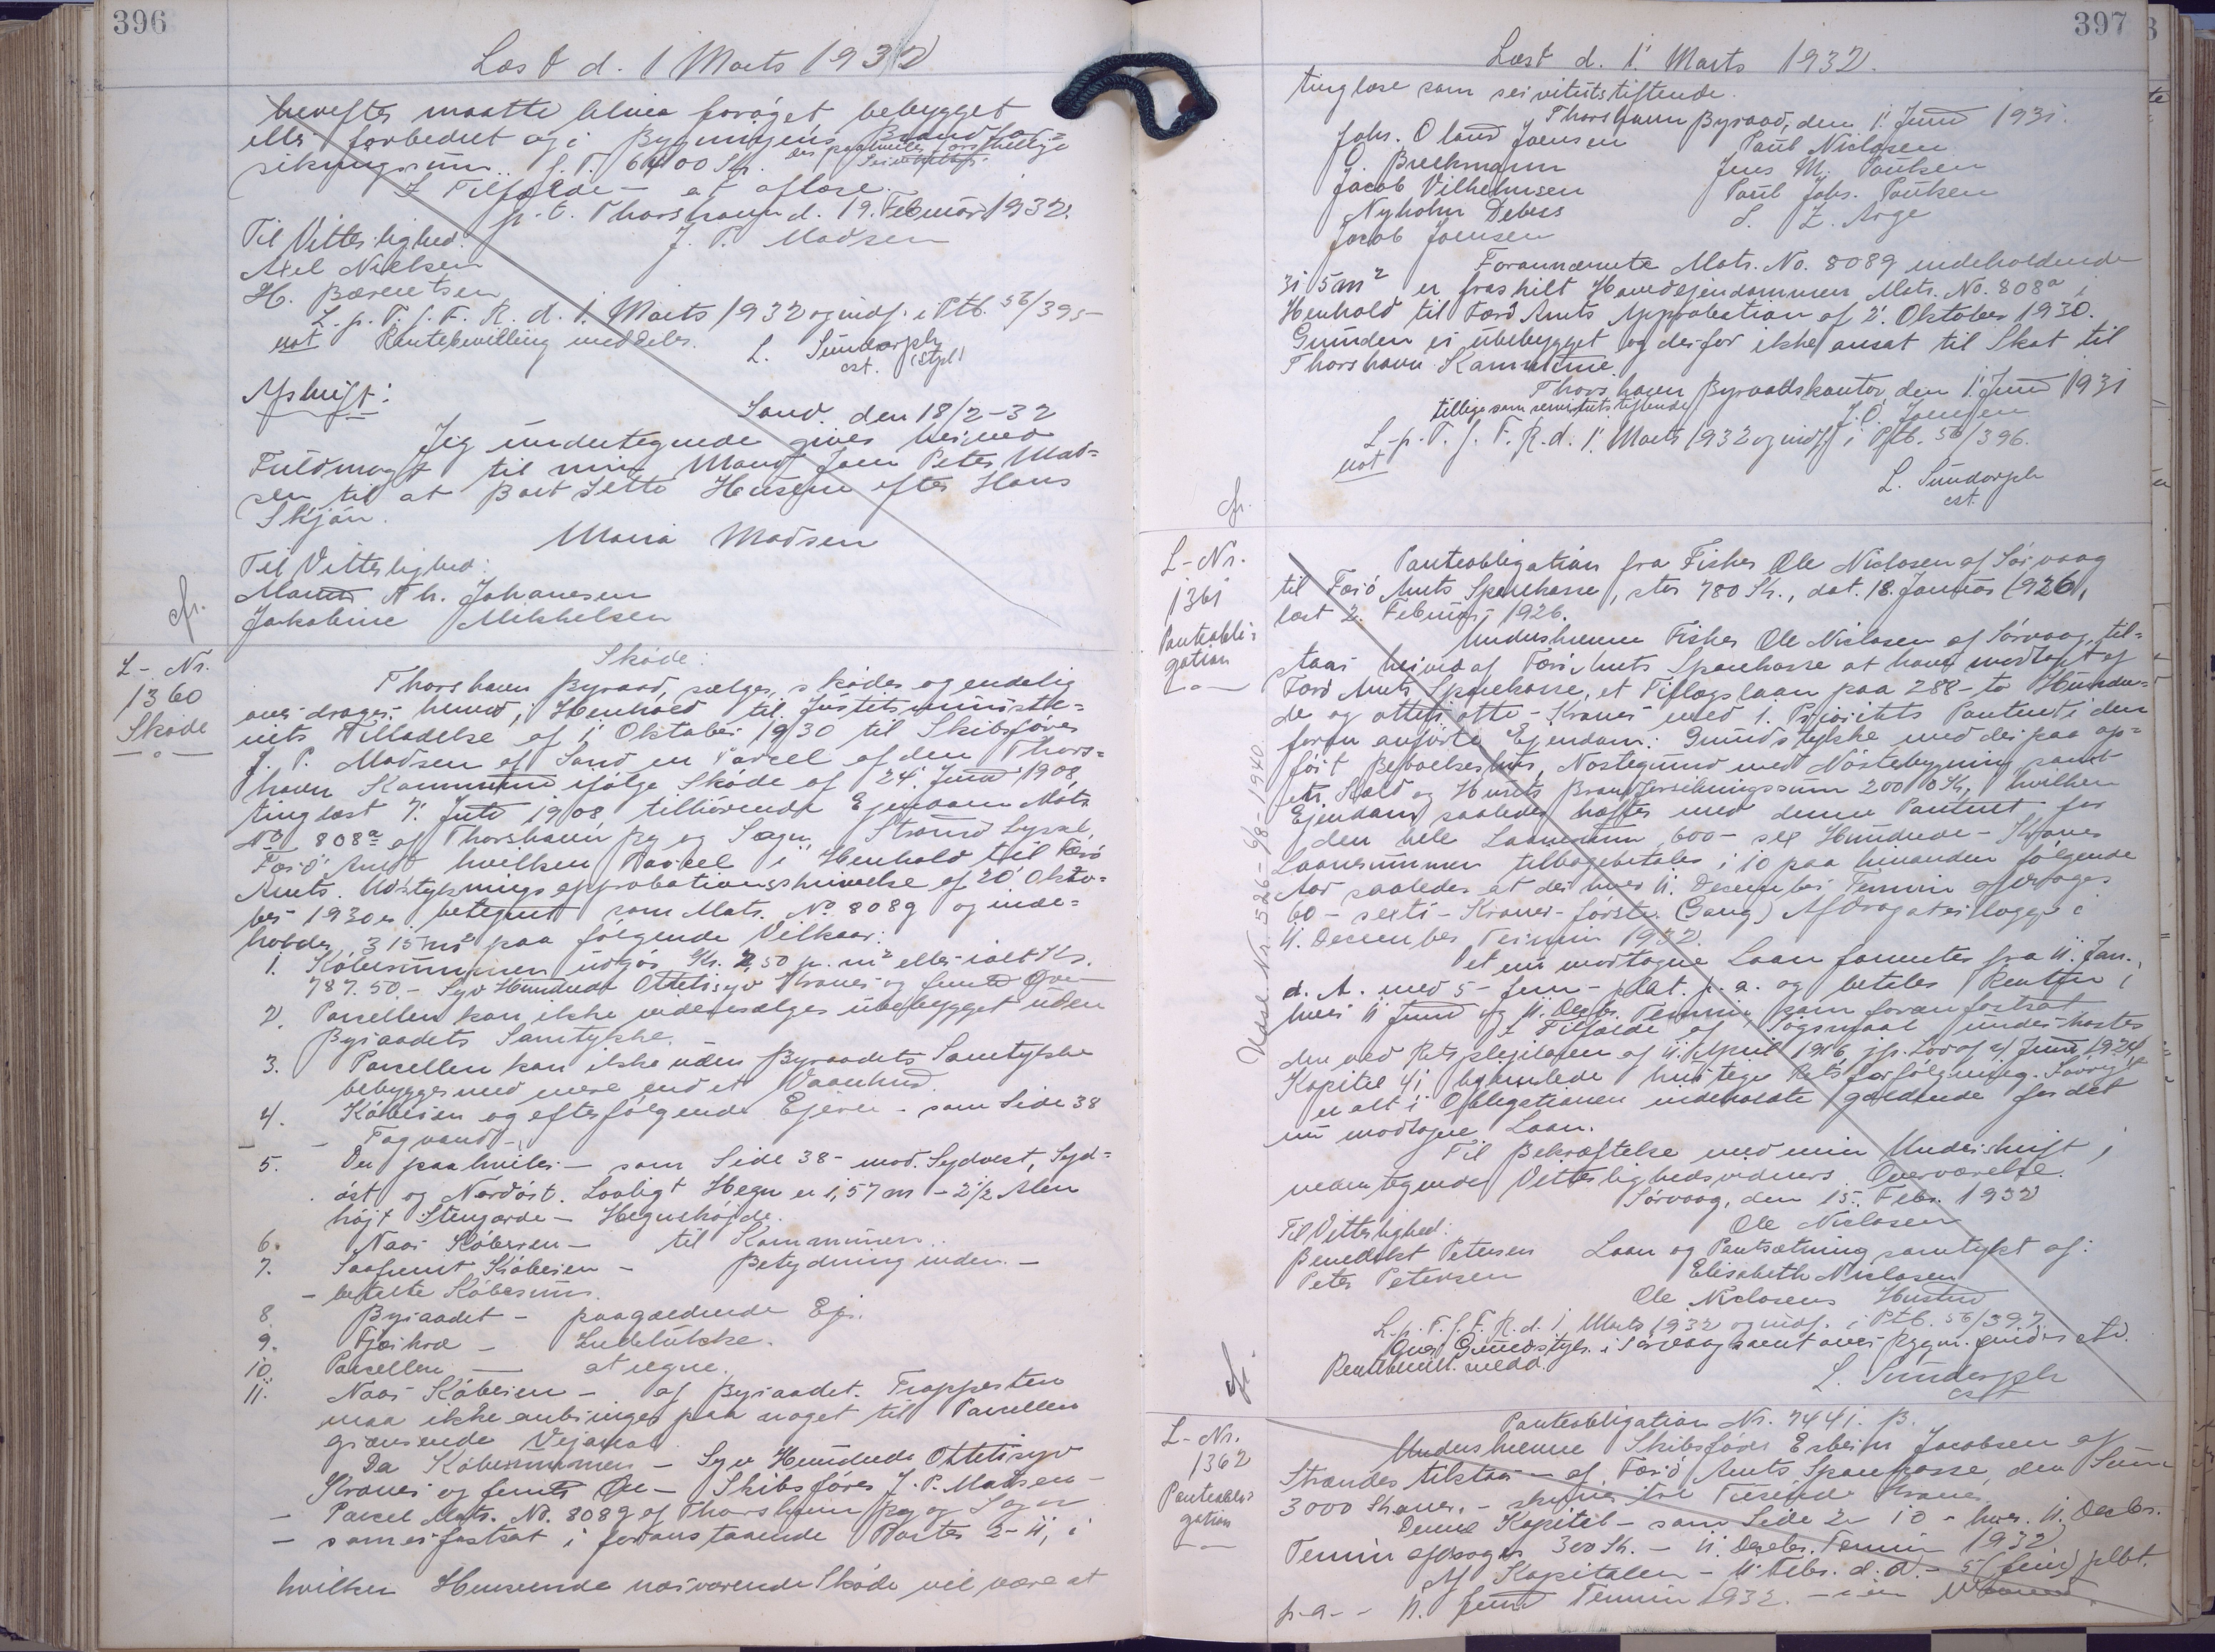 396
Læst d. 1 Marts 1932
herefter maatte blive forøget bebygget
eller forbedret og i Bygningens Brandfor=
sikringssum f. T. 6400 Kr. der paahviler
I Tilfælde — at afløse.
p.t. Thorshavn d. 19. Februar 1932.
Til Vitterlighed:
J. P. Madsen
Axel Nielsen
H. Bærentsen
L. p. T. f. F. R. d. 1. Marts 1932 og indf. i Ptb. 56/395
not Rentebevilling meddeles.
L. Sundorph
cst. (Stpl)
Afskrift:
Sand. den 18/2-32
Jeg undertegnede giver hermed
Fuldmagt til min Mand Joen Peter Mad=
sen til at Bort Sette Husene efter Hans
Skjøn.
Maria Madsen
Til Vitterlighed:
Th. Johanesen
Jakobine Mikkelsen
cfr.
L-Nr.
1360
Skøde
Skøde:
Thorshavn Byraad, sælger, skøder og endelig
overdrager herved, i Henhold til Justitsministe=
riets Tilladelse af 1 Oktober 1930 til Skibsfører
J. P. Madsen af Sand en Parcel af den Thors=
havn Kommune ifølge Skøde af 24. Juni 1908,
tinglæst 7. Juli 1908 tilhørende Ejendom Matr.
No 808a af Thorshavn By og Sogn, Strømø Syssel,
Færø Amt hvilken Parcel i Henhold til Færø
Amts Udstykningsapprobationsskrivelse af 20 Okto=
ber 1930 er betegnet som Matr. No 808g og inde=
holder 315 m² paa følgende Vilkaar:
1. Købesummen udgør Kr. 2,50 p. m² eller ialt Kr.
787.50 - Syv Hundrede Ottetisyv Kroner og femti Øre
2. Parcellen kan ikke videresælges ubebygget uden
Byraadets Samtykke.
3. Parcellen kan ikke uden Byraadets Samtykke
bebygges med mere end et Vaanhus.
4. Køberen og efterfølgende Ejere - som Side 38
- Tagvand -
5. Der paahviler - som Side 38 - mod. Sydvest, Syd=
øst og Nordøst. Lovligt Hegn er 1,57 m - 2½ Alen
højt Stengærde - Hegnshøjde.
6. Naar Køberen - til Kommunen.
7. Saafremt Køberen - Betydning inden. -
- betalte Købesum.
8. Byraadet - paagældende Ej.
9. Fjerkræ - Indelukke.
10. Parcellen - at regne.
11. Naar Køberen - af Byraadet. Trappesten
maa ikke anbringes paa noget til Parcellen
grænsende Vejareal
Da Købesummen - Syv Hundrede Ottetisyv
Kroner og femti Øre - Skibsfører J. P. Madsen -
- Parcel Matr. No. 808g af Thorshavn By og Sogn
- som er fastsat i foranstaaende Poster 2-11, i
hvilken Henseende nærværende Skøde vil være at
397
Læst d. 1. Marts 1932.
tinglæse som servitutstiftende.
Thorshavn Byraad, den 1. Juni 1931.
Johs. Oland Joensen
Paul Niclasen
O. Breckmann
Jens M. Poulsen
Jacob Vilhelmsen
Paul Johs. Poulsen
Nyholm Debess
L. Z. Arge
Jacob Joensen
Forannævnte Matr. No. 808g indeholdende
315 m² er fraskilt Hovedejendommen Matr. No. 808a i
Henhold til Færø Amts Approbation af 2. Oktober 1930.
Grunden er ubebygget og derfor ikke ansat til Skat til
Thorshavn Kommune.
Thorshavn Byraadskontor, den 1. Juni 1931
tillige som servitutstiftende
J. O. Joensen
L. p. T. f. F. R. d. 1. Marts 1932 og indf. i Ptb. 56/396.
not
L. Sundorph
cst.
cfr.
L-Nr.
1361
Panteobli=
gation
Udsl. Nr. 526-9/8-1940
Panteobligation fra Fisker Ole Niclasen af Sørvaag
til Færø Amts Sparekasse, stor 780 Kr., dat. 18. Januar 1926,
læst 2. Februar 1926.
Underskrevne Fisker Ole Niclasen af Sørvaag, til=
staar herved af Færø Amts Sparekasse at have modtaget af
Færø Amts Sparekasse, et Tillægslaan paa 288 - to Hundre=
de og ottetiotte - Kroner med 1. Prioritets Panteret i den
foran anførte Ejendom: Grundstykke med derpaa op=
ført Beboelseshus, Nøstegrund med Nøstebygning samt
Husets Brandforsikringssum 2000 Kr, hvilken
Ejendom saaledes hæfter med denne Panteret for
den hele Lånesum 600 - sex Hundrede - Kroner
Laanesummen tilbagebetales i 10 paa hinanden følgende
Aar saaledes at der hver 11. December Termin afdrages
60 - sexti - Kroner - første Gang) Afdraget erlægges i
11. December Termin 1932.
Det nu modtagne Laan forrentes fra 11. Jan.
d. A. med 5 - fem - pCt. p. a. og betales Renten i
hver 11 Juni og 11. Decbr. Termin som foran fortsat
I Tilfælde af Søgsmaal underkastes
den ved Retsplejeloven af 11. April 1916 jfr. Lov af Juni
Kapitel 41 hjemlede hurtige Retsforfølgning. Iøvrigt
er alt i Obligationen indeholdte gældende for det
nu modtagne Laan.
Til Bekræftelse med min Underskrift i
nedentegnede Vitterlighedsvidners Overværelse.
Sørvaag, den 15. Febr. 1932
Til Vitterlighed:
Ole Niclasen
Benedikt Petersen
Laan og Pantsætning samtykt af:
Peter Petersen
Elisabeth Niclasen
Ole Niclasens Hustru
L. p. T. f. F. R. d. 1. Marts 1932 og indf. i Ptb. 56/397.
Grundstyk. i Sørvaag samt over Bygn.
Rentebevill. medd.
L. Sundorph
cst
cfr.
L-Nr.
1362
Panteobli=
gation
Panteobligation Nr. 7441. B.
Underskrevne Skibsfører Esbern Jacobsen af
Strændes tilstaar - af Færø Amts Sparekasse, den Sum
3000 Kroner. - skriver tre Tusende Kroner.
Denne Kapital - som Side 2 - 10 - hver. 11. Decbr.
Termin afdrages 300 Kr. - 11. Decbr. Termin 1932
Af Kapitalen - 11. Febr. d. A. - 5 (fem) pCt.
p.a. - 11. Juni Termin 1932. -